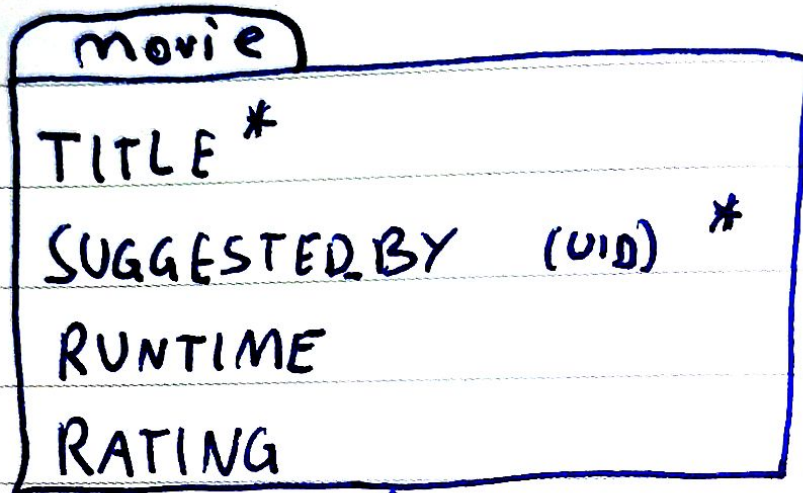 movie
TITLE *
SUGGESTED_BY (UID) *
RUNTIME
RATING